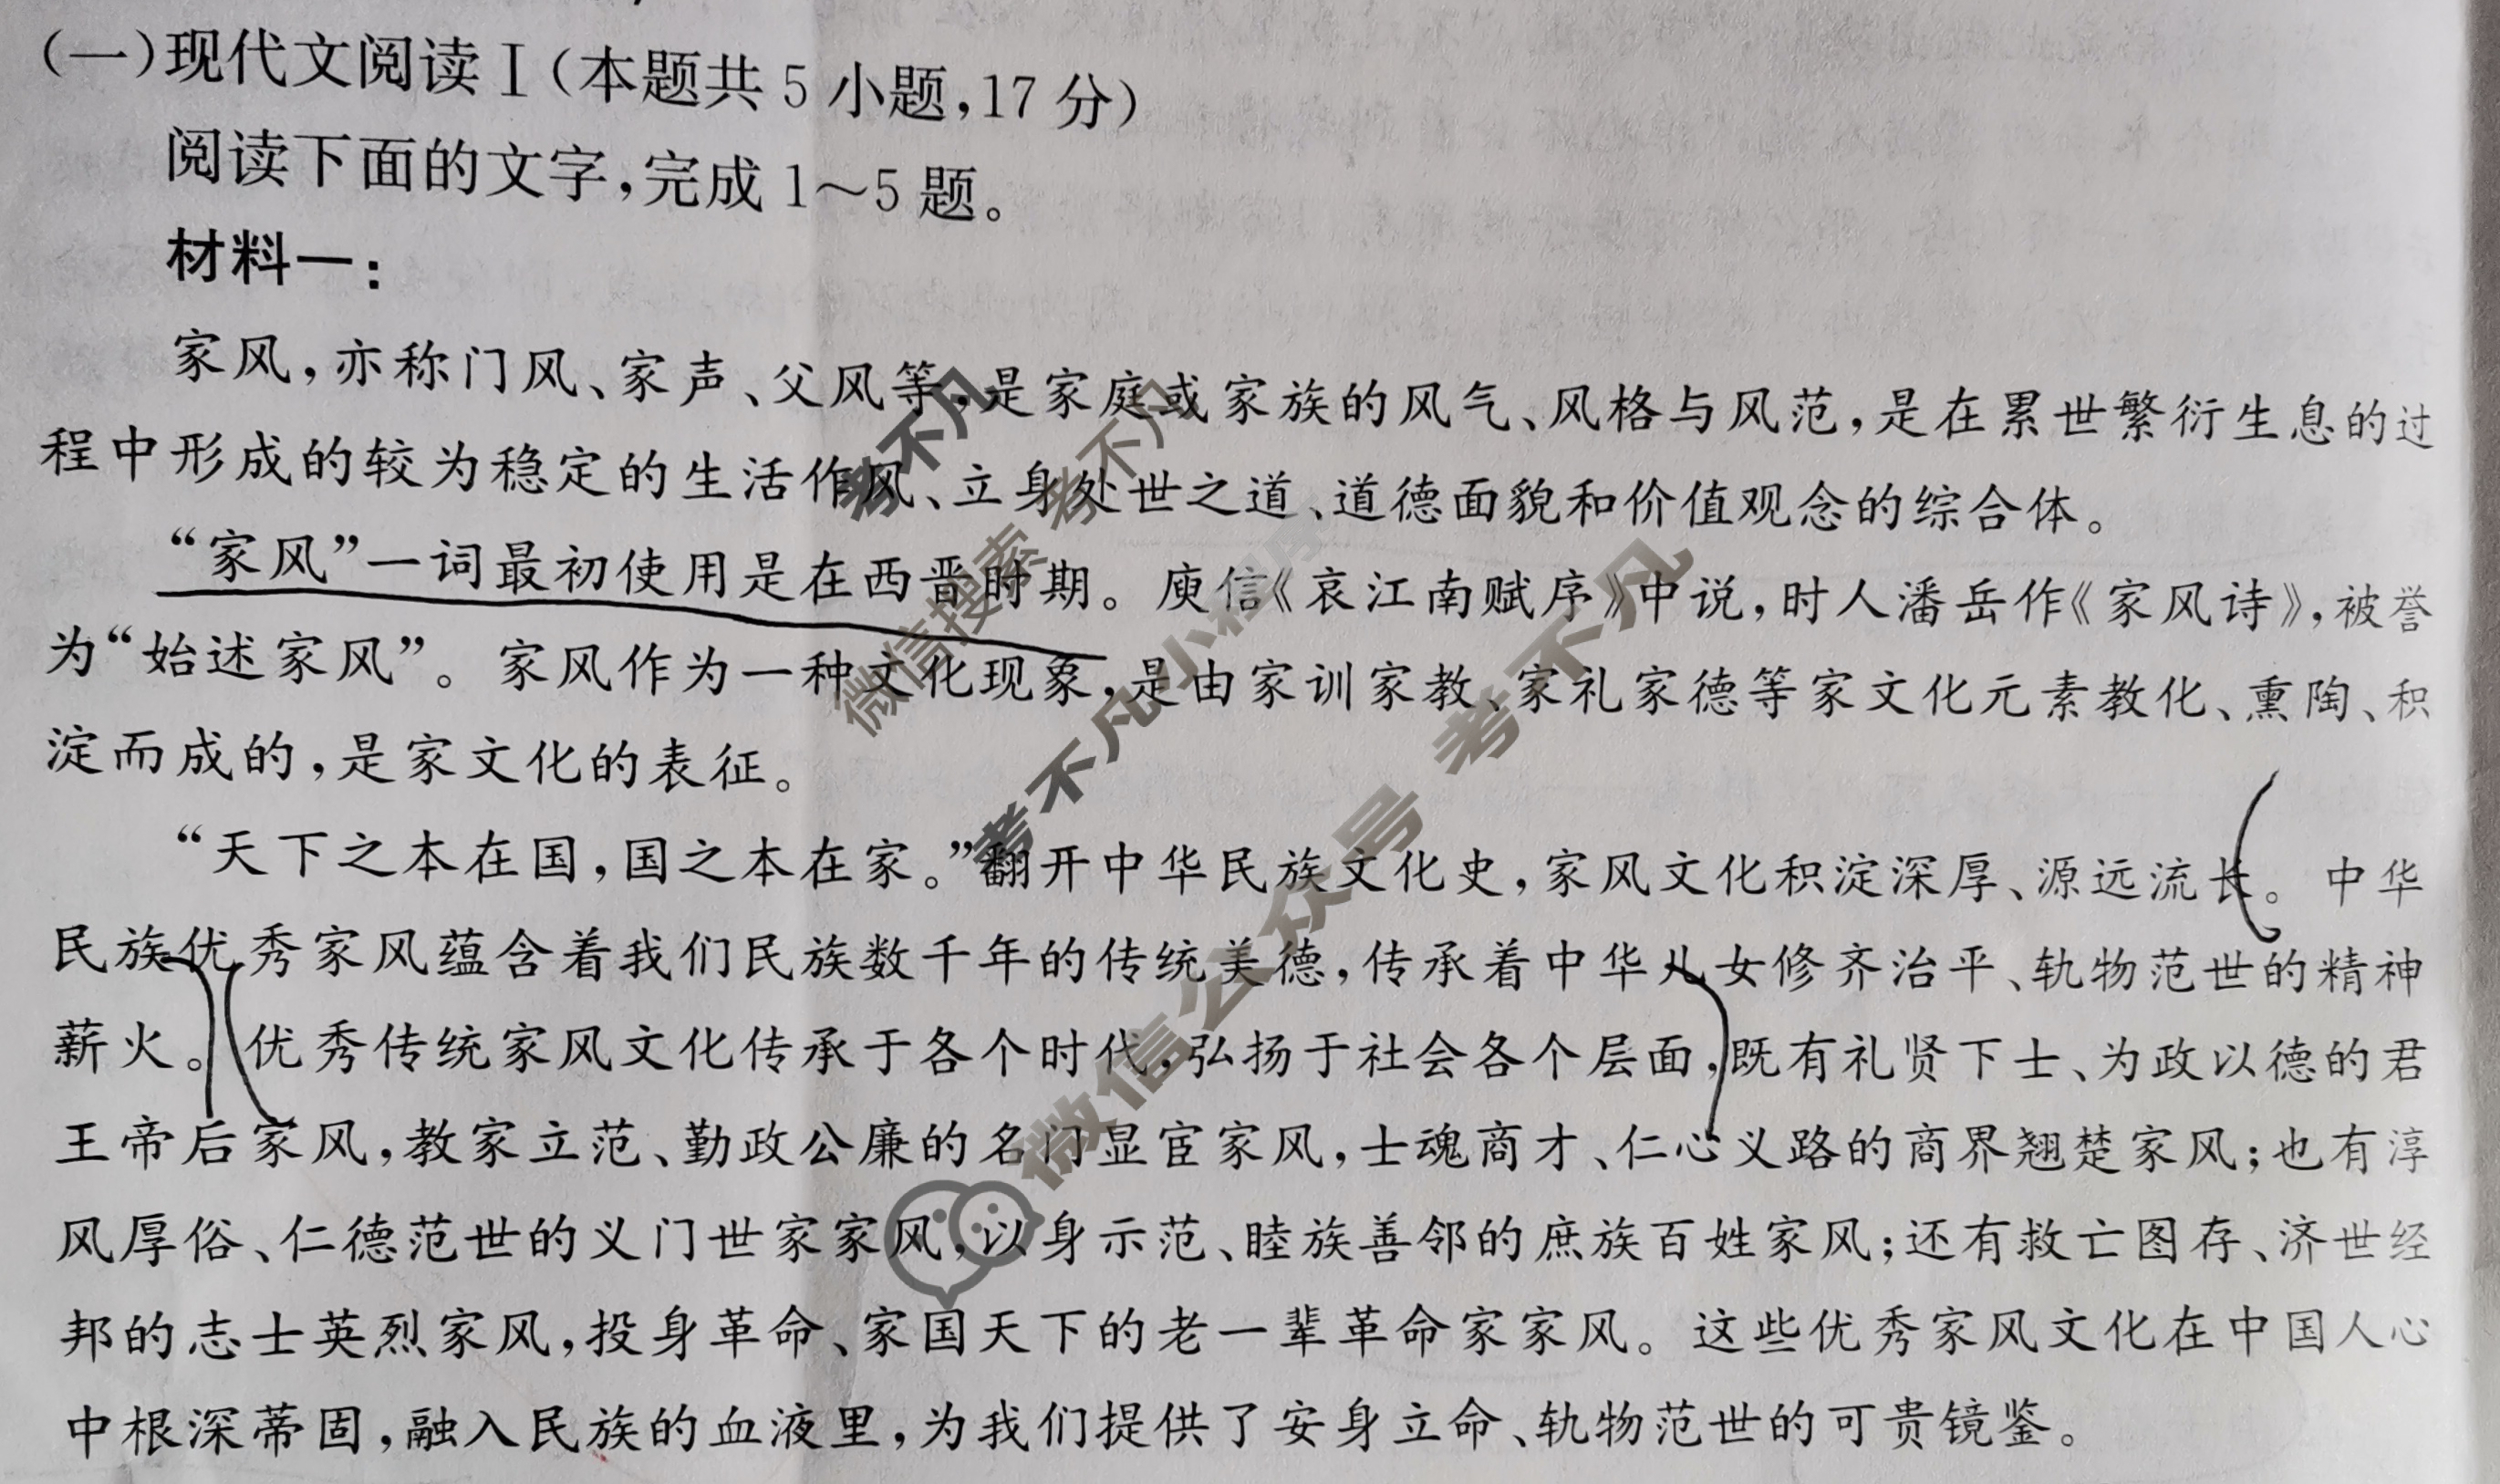 (一)现代文阅读Ⅰ(本题共5小题,17分)
阅读下面的文字,完成1～5题。
材料一:
家风,亦称门风、家声、父风等,是家庭或家族的风气、风格与风范,是在累世繁衍生息的过
程中形成的较为稳定的生活作风、立身处世之道、道德面貌和价值观念的综合体。
“家风”一词最初使用是在西晋时期。庾信《哀江南赋序》中说,时人潘岳作《家风诗》,被誉
为“始述家风”。家风作为一种文化现象,是由家训家教、家礼家德等家文化元素教化、熏陶、积
淀而成的,是家文化的表征。
“天下之本在国,国之本在家。”翻开中华民族文化史,家风文化积淀深厚、源远流长。中华
民族优秀家风蕴含着我们民族数千年的传统美德,传承着中华儿女修齐治平、轨物范世的精神
薪火。优秀传统家风文化传承于各个时代,弘扬于社会各个层面,既有礼贤下士、为政以德的君
王帝后家风,教家立范、勤政公廉的名门显宦家风,士魂商才、仁心义路的商界翘楚家风;也有淳
风厚俗、仁德范世的义门世家家风,以身示范、睦族善邻的庶族百姓家风;还有救亡图存、济世经
邦的志士英烈家风,投身革命、家国天下的老一辈革命家家风。这些优秀家风文化在中国人心
中根深蒂固,融入民族的血液里,为我们提供了安身立命、轨物范世的可贵镜鉴。
考不凡
微信搜索 考不凡
考不凡小程序
微信公众号 考不凡